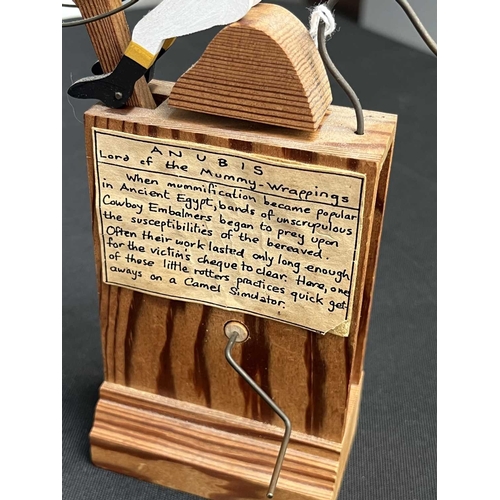 ANUBIS
Lord of the Mummy-Wrappings
When mummification became popular
in Ancient Egypt, bands of unscrupulous
Cowboy Embalmers began to prey upon
the susceptibilities of the bereaved.
Often their work lasted only long enough
for the victim's cheque to clear. Here, one
of those little rotters practices quick get-
aways on a Camel Simulator.